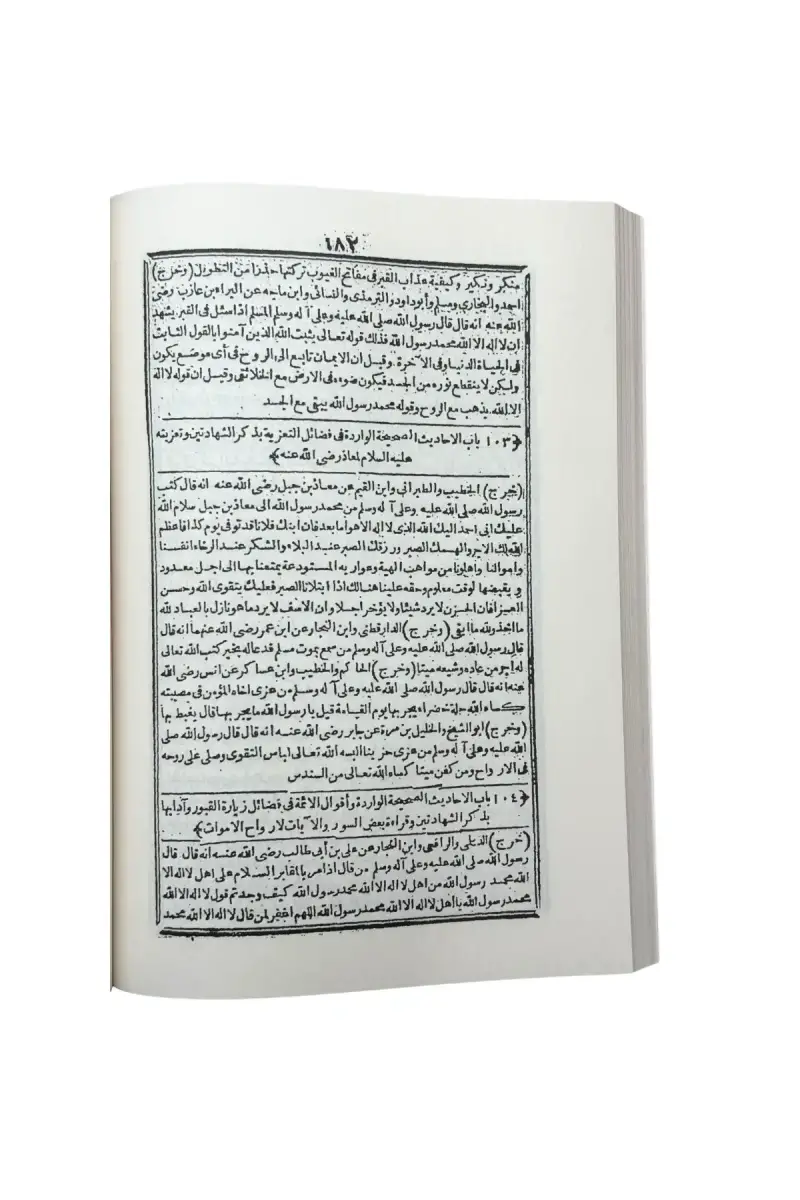 ١٨٢
منكر ونكير وكيفية عذاب القبر في مفاتح الغيوب تركتها حذرا من التطويل (وخرج)
احمد والبخاري ومسلم وأبو داود والترمذى والنسائى وابن ماجه عن البراء بن عازب رضى
الله عنه انه قال قال رسول الله صلى الله عليه وعلى آله وسلم المسلم اذا سئل فى القبر يشهد
ان لا اله الا الله محمد رسول الله فذلك قوله تعالى يثبت الله الذين آمنوا بالقول الثابت
فى الحياة الدنيا وفى الآخرة وقيل ان الايمان تابع الى الروح فى أى موضع يكون
ولكن لا ينقطع نوره من الجسد فيكون ضوءه فى الارض مع الخلائق وقيل ان قوله لا اله
الا الله يذهب مع الروح وقوله محمد رسول الله يبقى مع الجسد
﴿١٠٣ باب الاحاديث الصحيحة الواردة فى فضائل التعزية بذكر الشهادتين وتعزيته
عليه السلام لمعاذ رضى الله عنه﴾
(خرج) الخطيب والطبرانى وابن القيم عن معاذ بن جبل رضى الله عنه انه قال كتب
رسول الله صلى الله عليه وعلى آله وسلم من محمد رسول الله الى معاذ بن جبل سلام الله
عليك انى احمد اليك الله الذى لا اله الا هو اما بعد فان ابنك فلانا قد توفى يوم كذا فاعظم
الله لك الاجر والهمك الصبر ورزقك الصبر عند البلاء والشكر عند الرخاء انفسنا
واموالنا واهلونا من مواهب الهية وعواريه المستودعة يمتعنا بها الى اجل معدود
ويقبضها لوقت معلوم وحقه علينا هنالك اذا ابتلانا الصبر فعليك بتقوى الله وحسن
العزاء فان الحزن لا يرد شيئا ولا يؤخر اجلا وان الاسف لا يرد ما هو نازل بالعباد لله
ما اخذ ولله ما ابقى (وخرج) الدارقطنى وابن النجار عن ابن عمر رضى الله عنهما انه قال
قال رسول الله صلى الله عليه وعلى آله وسلم من سمع بموت مسلم فدعا له بخير كتب الله تعالى
له اجر من عاده وشيعه ميتا (وخرج) الحاكم والخطيب وابن عساكر عن انس رضى الله
عنه انه قال قال رسول الله صلى الله عليه وعلى آله وسلم من عزى اخاه المؤمن فى مصيبته
كساه الله حلة خضراء يجر بها يوم القيامة قيل يا رسول الله ما يجر بها قال يغبط بها
(وخرج) ابو الشيخ والخليل بن مرة عن جابر رضى الله عنه انه قال قال رسول الله صلى
الله عليه وعلى آله وسلم من عزى حزينا البسه الله تعالى لباس التقوى وصلى على روحه
فى الارواح ومن كفن ميتا كساه الله تعالى من السندس
﴿١٠٤ باب الاحاديث الصحيحة الواردة وأقوال الائمة فى فضائل زيارة القبور وآدابها
بذكر الشهادتين وقراءة بعض السور والآيات لارواح الاموات﴾
(خرج) الديلمى والرافعى وابن النجار عن على بن أبى طالب رضى الله عنه انه قال قال
رسول الله صلى الله عليه وعلى آله وسلم من قال اذا مر بالمقابر السلام على اهل لا اله الا
الله محمد رسول الله من اهل لا اله الا الله محمد رسول الله كيف وجدتم قول لا اله الا الله
محمد رسول الله يا اهل لا اله الا الله محمد رسول الله اللهم اغفر لمن قال لا اله الا الله محمد